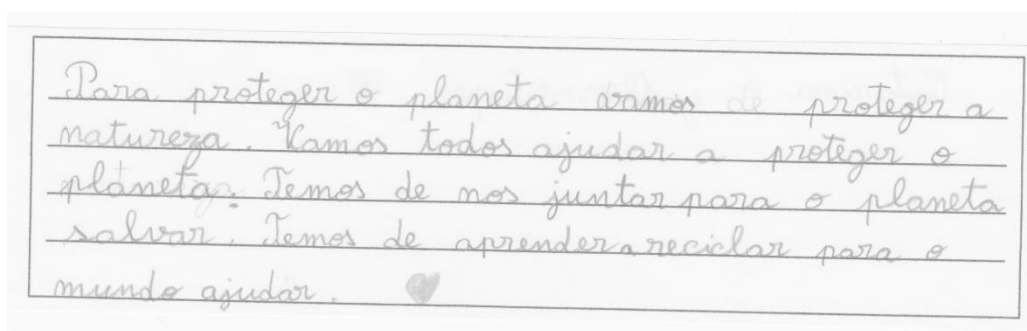 Para proteger o planeta vamos proteger a
natureza. Vamos todos ajudar a proteger o
planeta. Temos de nos juntar para o planeta
salvar. Temos de aprender a reciclar para o
mundo ajudar.